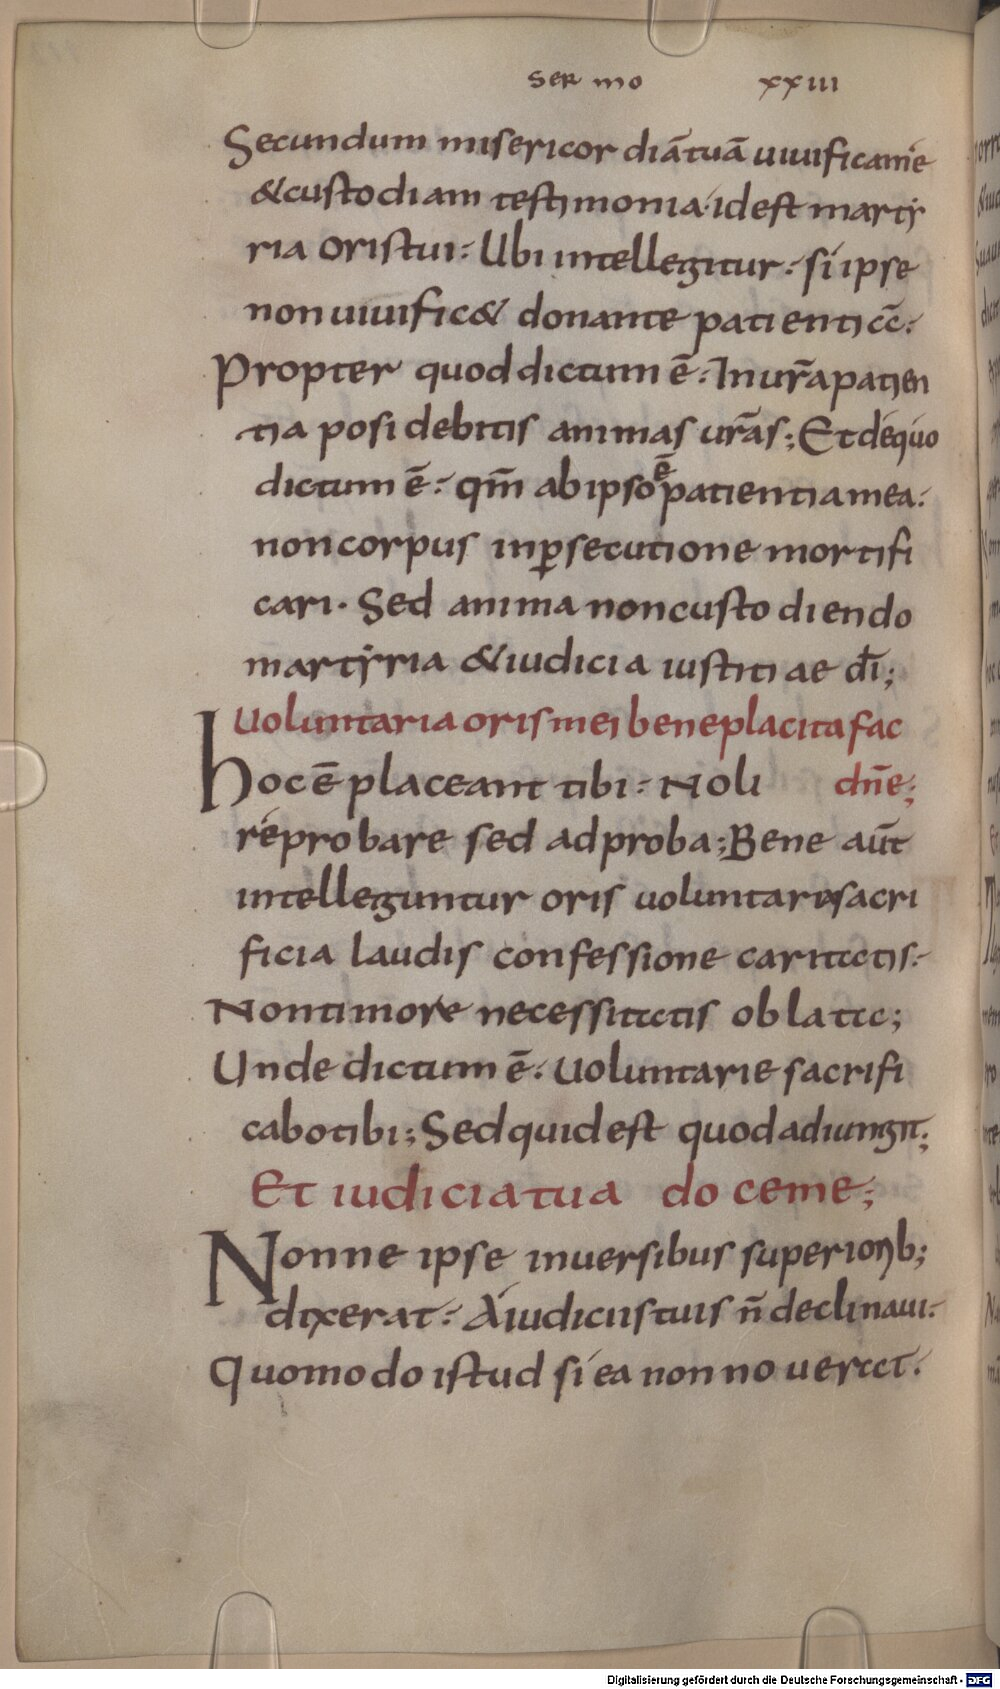 SERmo XXIII
Secundum misericordiātuā uiuificame
&custodiam testimonia·idest marty
ria oristui: Ubi intellegitur: si ipse
non uiuific& donante patientiā:
Propter quod dictum ē: In ur̄apatien
tia posidebitis animas ur̄as; Et dequo
dictum ē: qm̄ ab ipso ē patientia mea:
non corpus inp̱secutione mortifi
cari. Sed anima non custodiendo
martyria &iudicia iustitiae dī;
Uoluntaria oris mei beneplacita fac
hoc ē placeant tibi: Noli dn̄e;
reprobare sed adproba; Bene aūt
intelleguntur oris uoluntaria sacri
ficia laudis confessione caritatis:
Non timore necessitatis oblata;
Unde dictum ē: Uoluntarie sacrifi
cabo tibi; Sed quid est quod adiungit;
Et iudicia tua doceme;
Nonne ipse inuersibus superiorib;
dixerat: A iudiciis tuis n̄ declinaui:
Quomodo istud si ea non nouerat:
Digitalisierung gefördert durch die Deutsche Forschungsgemeinschaft - DFG